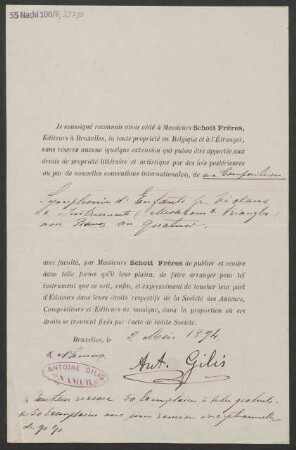 55 Nachl 100/B,
Je soussigné reconnais avoir cédé à Messieurs Schott Frères,
Editeurs à Bruxelles, la toute propriété en Belgique et à l'Étranger,
sans réserve aucune quelque extension que puisse être apportée aux
droits de propriété littéraire et artistique par des lois postérieures
ou par de nouvelles conventions internationales, de ma Composition
Symphonie d'Enfants pr
&
avec Piano ou Quatuor.
avec faculté, par Messieurs Schott Frères de publier et vendre
dans telle forme qu'il leur plaira, de faire arranger pour tel
instrument que ce soit, enfin, et expressément de toucher leur part
d'Éditeurs dans leurs droits respectifs de la Société des Auteurs,
Compositeurs et Editeurs de musique, dans la proportion où
ces droits se trouvent fixés par l'acte de ladite Société.
Bruxelles, le 2 1894
à Namur
ANTOINE GILIS
NAMUR
Ant. Gilis
50 exemplaires à titre gratuit
& 50 exemplaires avec une remise exceptionnelle
de 90 %